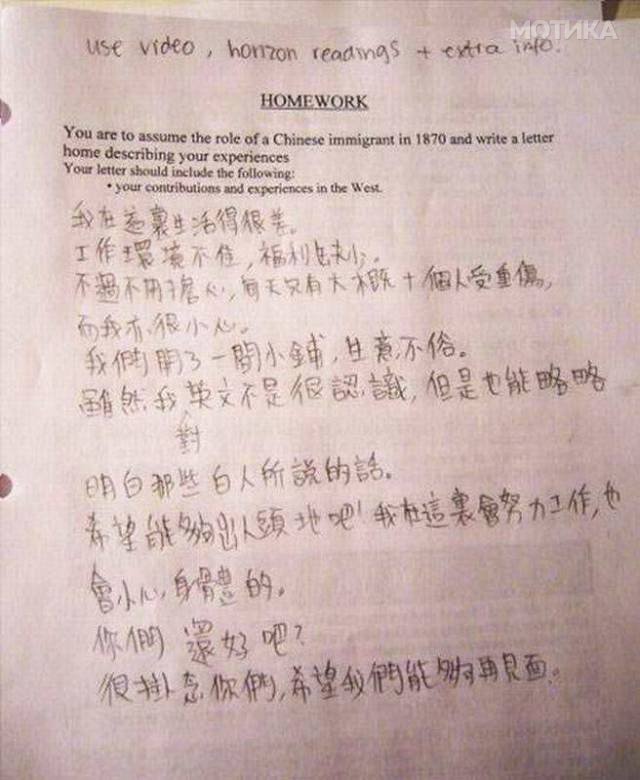 МОТИКА
use video, horizon readings + extra info.
HOMEWORK
You are to assume the role of a Chinese immigrant in 1870 and write a letter
home describing your experiences
Your letter should include the following:
• your contributions and experiences in the West.
我在這裏生活得很差。
工作環境不佳,福利缺少。
不過不用擔心,每天只有大概十個人受重傷,
而我亦很小心。
我們開了一間小鋪,生意不俗。
雖然我對英文不是很認識,但是也能略略
明白那些白人所說的話。
希望能夠出人頭地吧!我在這裏會努力工作,也
會小心身體的。
你們還好吧?
很掛念你們,希望我們能夠再見面。